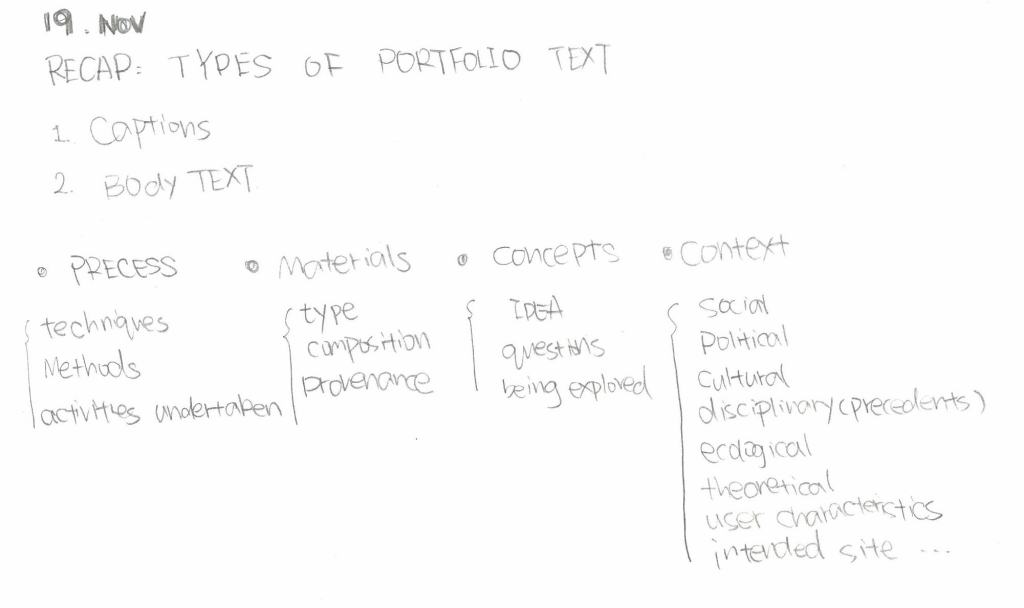 19. NOV
RECAP: TYPES OF PORTFOLIO TEXT
1. Captions
2. BOdy TEXT
• PRECESS
techniques
Methods
activities undertaken
• Materials
type
composition
provenance
• Concepts
IDEA
questions
being explored
• Context
Social
Political
Cultural
disciplinary (precedents)
ecological
theoretical
user characteristics
intended site ...